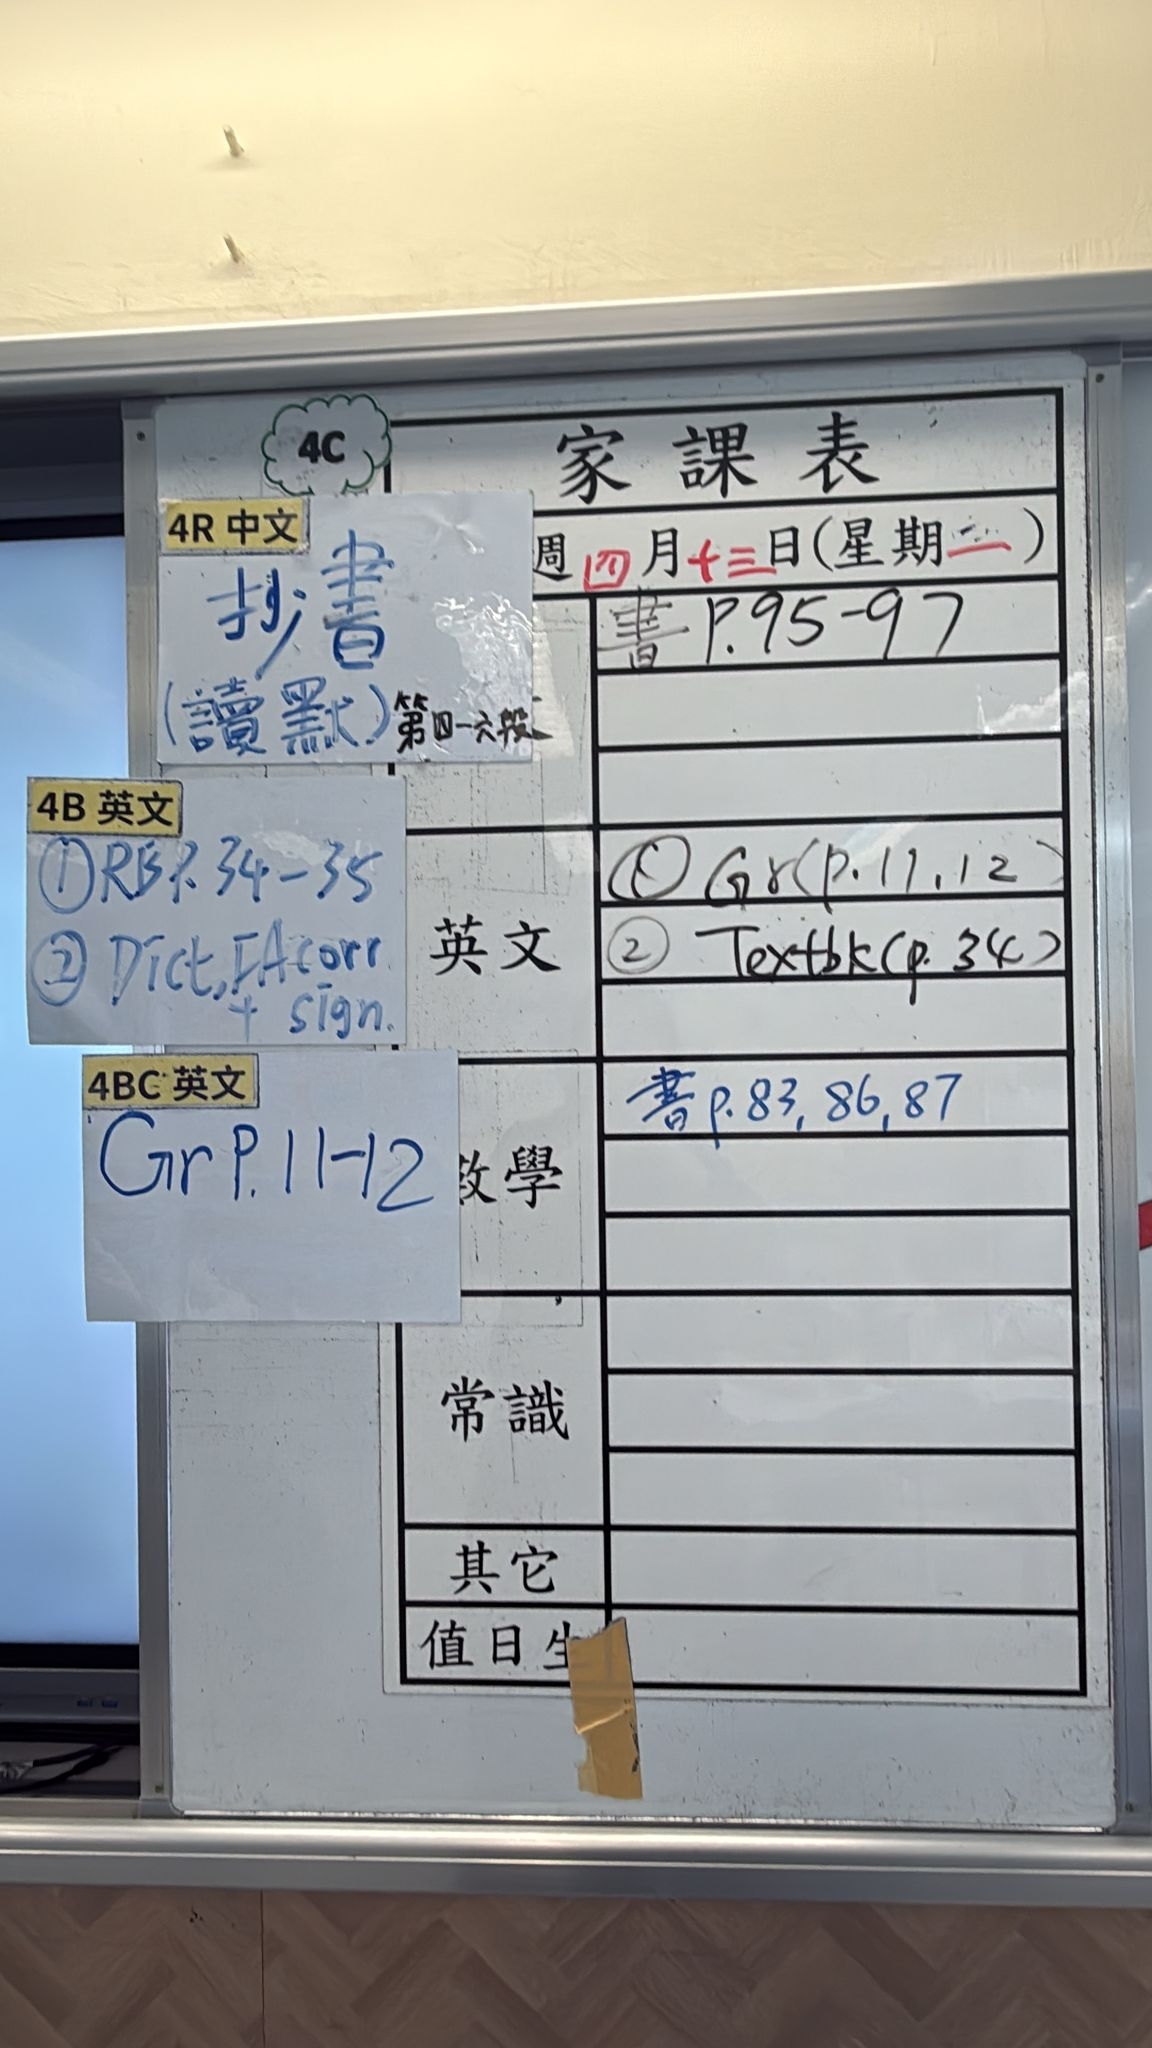 4C
家課表
週四月十三日(星期二)
4R 中文
抄書
(讀默)第四-六段
書 P.95-97
4B 英文
①RB P.34-35
② Dict, FA corr
+ sign.
英文
① Gr(p.11,12)
② Textbk(p.34)
4BC 英文
Gr P.11-12
數學
書 p.83, 86, 87
常識
其它
值日生